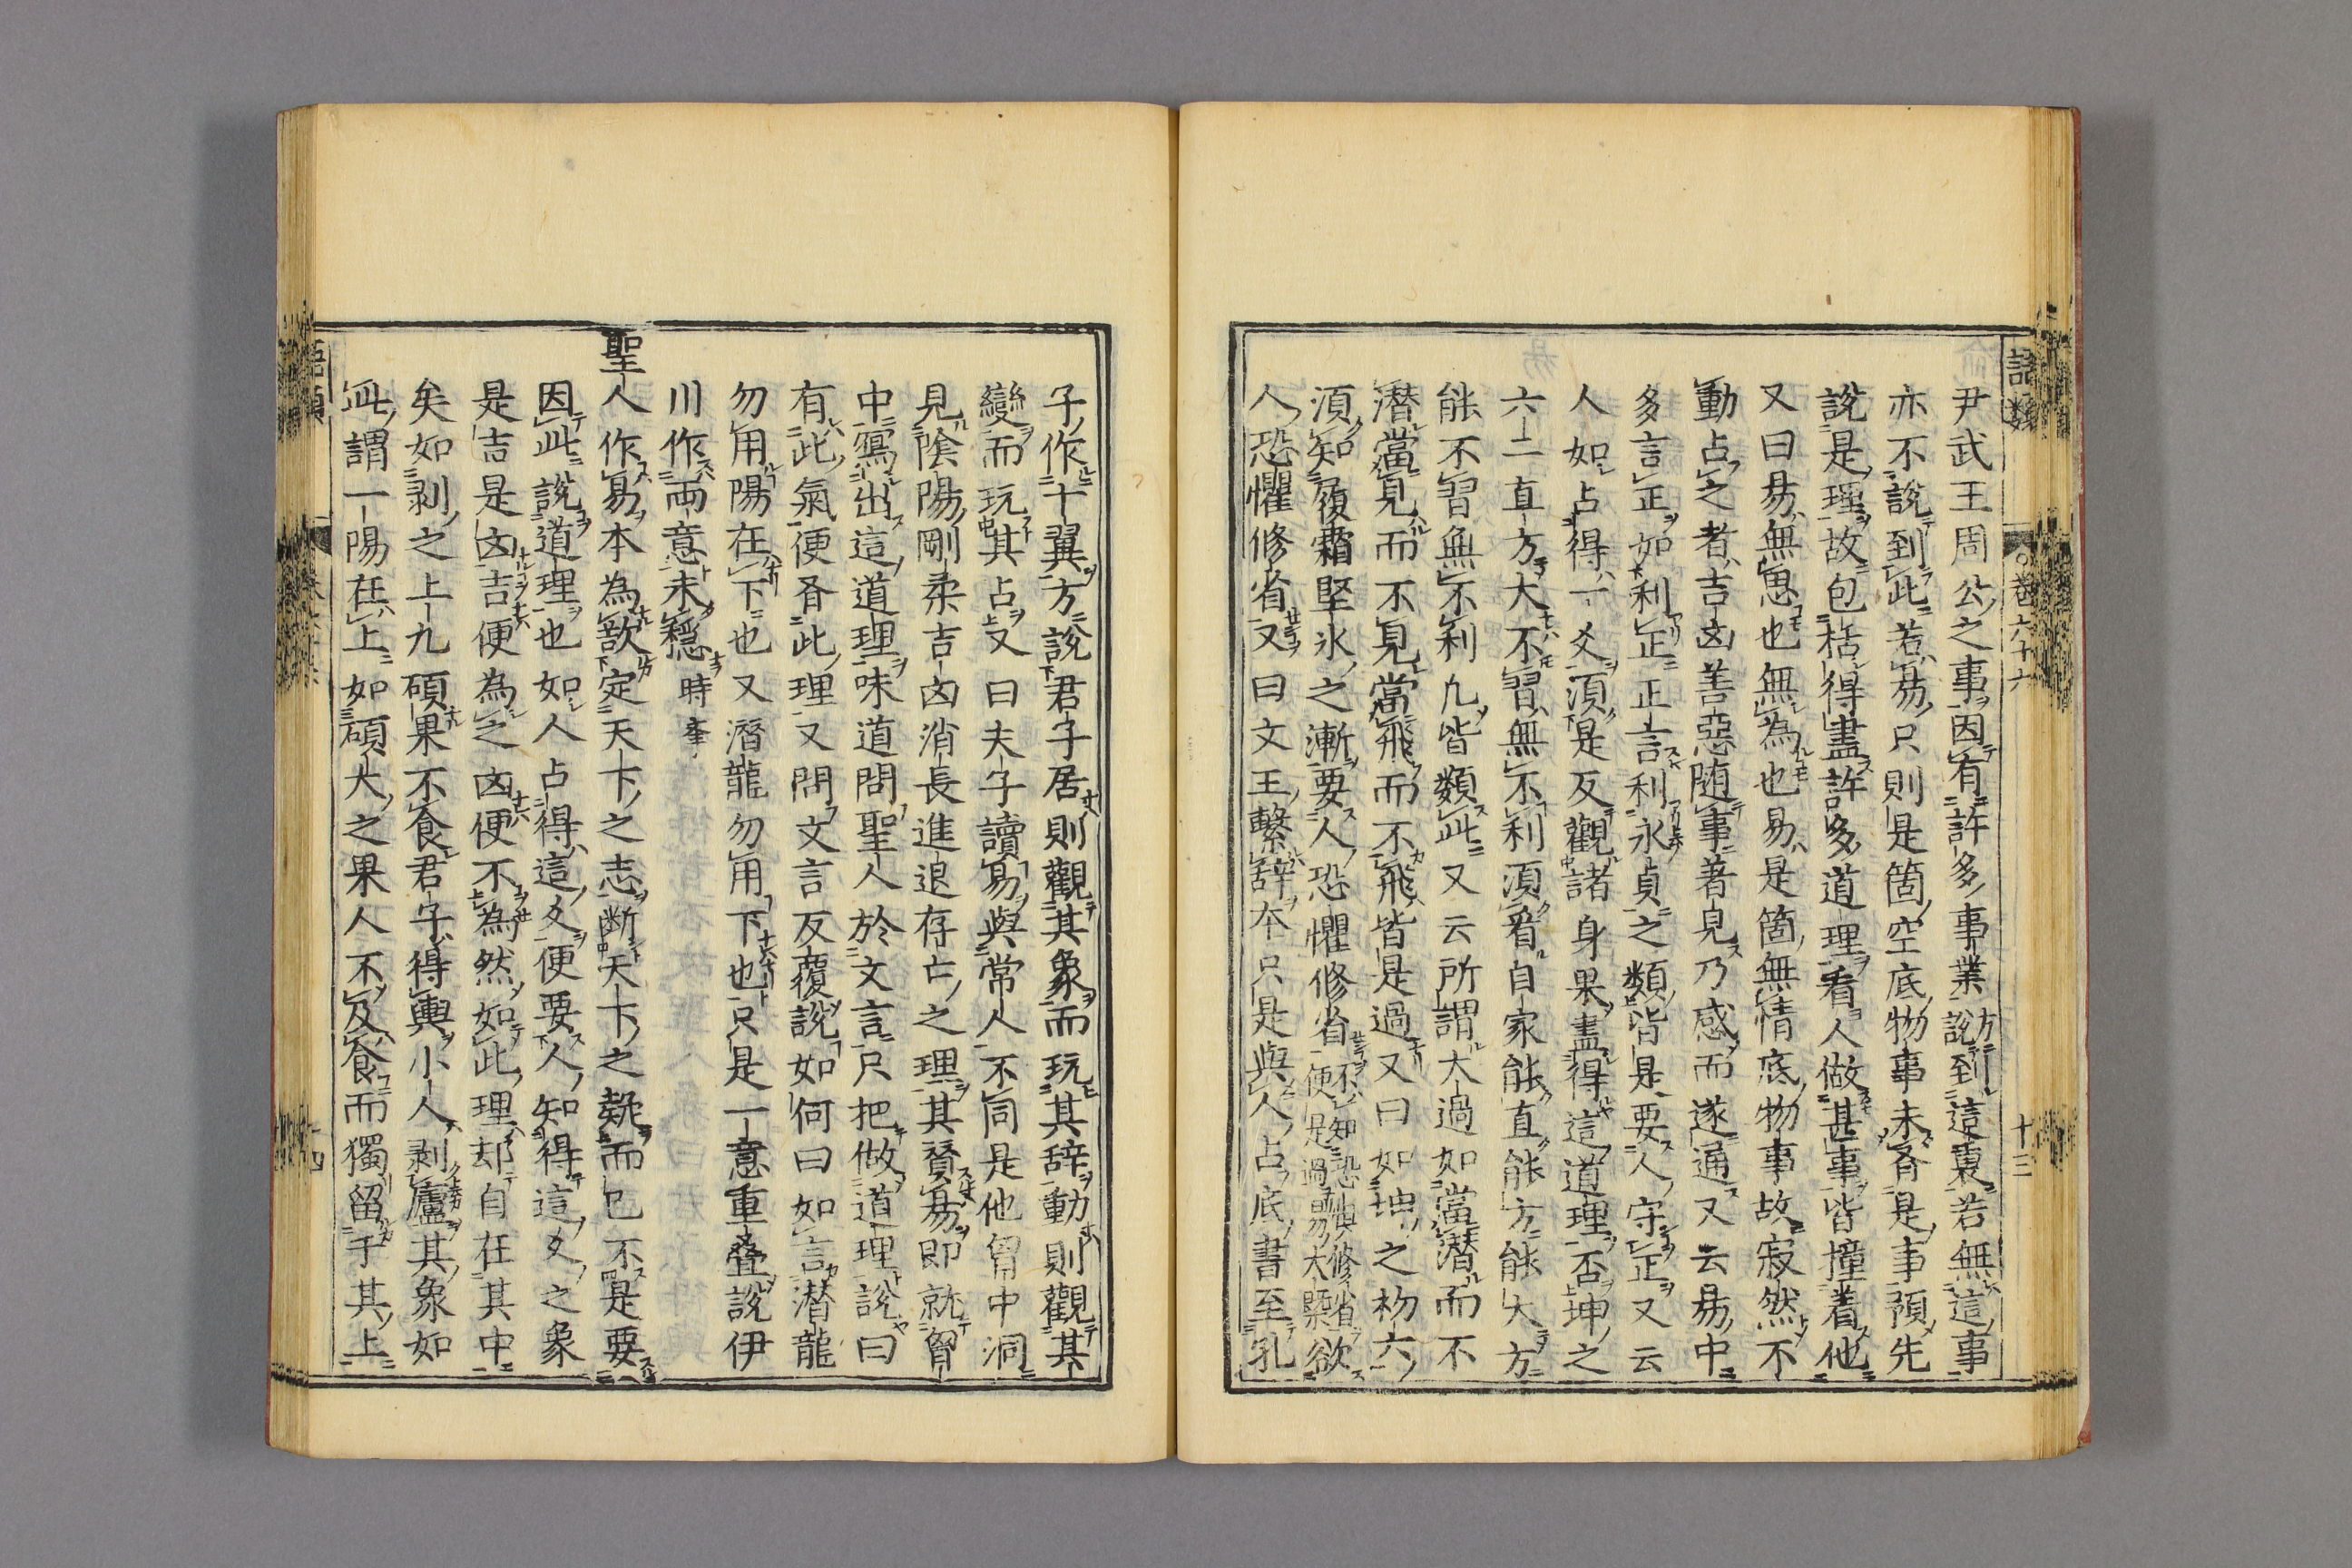 語類
○卷六十六
十三
尹武王周公之事因有許多事業方說到這裏若無這事
亦不說到此若易只則是箇空底物事未有是事預先
說是理故包括得盡許多道理看人做甚事皆撞着他
又曰易無思也無為也易是箇無情底物事故寂然不
動占之者吉凶善惡随事著見乃感而遂通又云易中
多言正如利正正言利永貞之類皆是要人守正又云
人如占得一爻湏是反觀諸身果盡得這道理否坤之
六二直方大不習無不利湏看自家能直能方能大方
能不習無不利凡皆類此又云所謂大過如當潜而不
潜當見而不見當飛而不飛皆是過又曰如坤之初六
湏知履霜堅氷之漸要人恐懼修省不知恐懼修省便是過易大槩欲
人恐懼修省又曰文王繫辭本只是與人占底書至孔
子作十翼方說君子居則觀其象而玩其辞動則觀其
變而玩其占又曰夫子讀易與常人不同是他胷中洞
見陰陽剛柔吉凶消長進退存亡之理其賛易即就胷
中寫出這道理味道問聖人於文言只把做道理說曰
有此氣便有此理又問文言反覆說如何曰如言潜龍
勿用陽在下也又潛龍勿用下也只是一意重叠說伊
川作兩意未穩 時舉
聖人作易本為欲定天下之志断天下之疑而已不是要
因此說道理也如人占得這爻便要人知得這爻之象
是吉是凶吉便為之凶便不為然如此理却自在其中
矣如剥之上九碩果不食君子得輿小人剥廬其象如
此謂一陽在上如碩大之果人不及食而獨留于其上